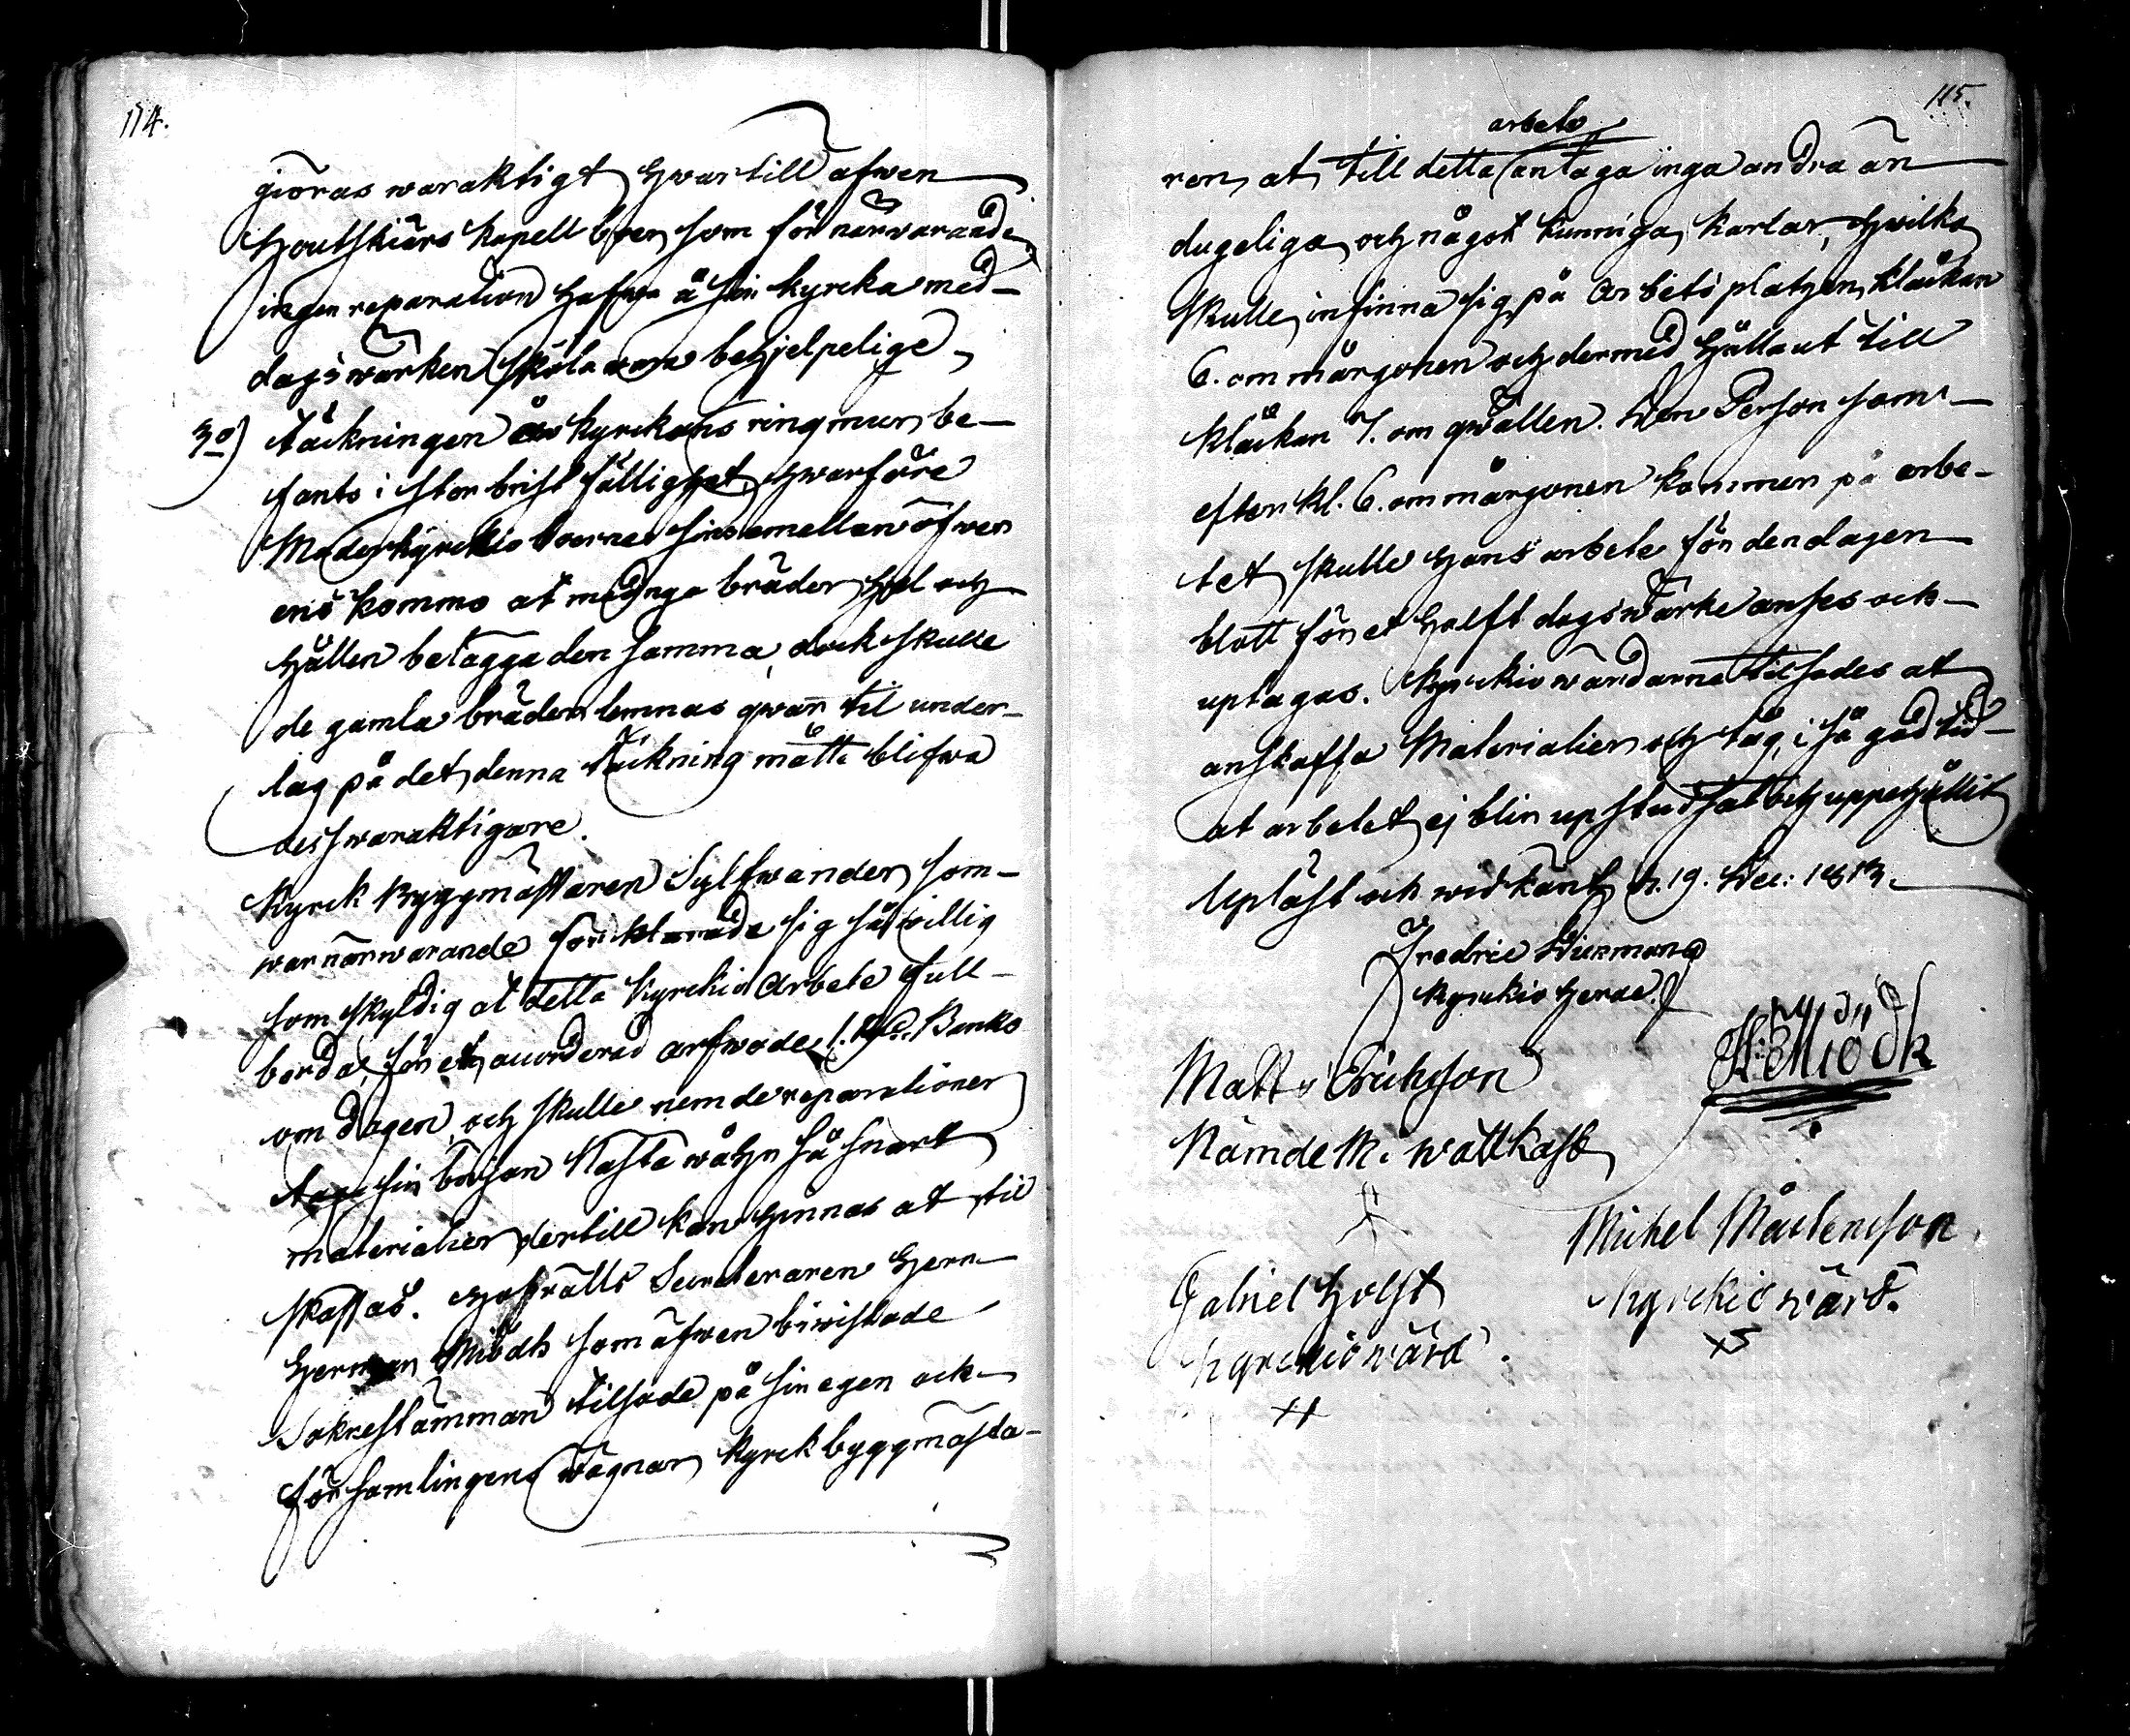 114.
giöras waraktigt hwartill äfwen
Houtskiärs Kapell boer som för närwarande
ingen reparation hafwa å sin kyrcka med
dagswärken skola wara behjelpelige
3o) Täckningen å kyrckans ringmur be-
fants i stor bristfällighet, hwarföre
Moderkyrckio boerne sins emellan öfwer
ens kommo at med nya bräder hel och
hållen betäcka den samma, dock skulle
de gamla bräder lemnas qwar til under-
lag på det denna täckning måtte blifwa
des waraktigare.
Kyrck Byggmästaren Sylfwander som
war närwarande förklarade sig så willig
som skyldig at detta kyrckio arbete full-
borda, för et accorderad arfwode 1. Rd. Banko
om dagen, och skulle nemde reparationer
taga sin början nästa wåhr så snart
materialier dertill kan hinnas at til
skaffas. Hofrätts Secreteraren Herr
Herman Miödh som äfwen biwistade
Soknestämman tilsade på sin egen och
församlingens wägnar Kyrckbyggmästa-
115.
arbete
ren, at till detta antaga inga andra än
dugeliga och något kunniga karlar, hwilka
skulle infinna sig på arbetsplatzen klåckan
6. om mårgonen och dermed hålla ut till
klåckan 7. om qwällen. Den Person som
efter kl. 6. om mårgonen kommer på arbe-
tet skulle hans arbete för den dagen
blott för et halft dagswärke anses och
uptagas. Kyrckiowärdarne tilsades at
anskaffa Materialier och tåg, i så god tid
at arbetet ej blir upstudsat och uppehållit
Upläst och widkänt d. 19. Dec: 1813.
Fredric Wirzman
Kyrckio Herde.
H: Miödh
Matts Erichsson
Nämde M. i Wattkast
Michel Mårtensson
Kyrckio wärd.
Gabriel Holst
Kyrckio wärd.